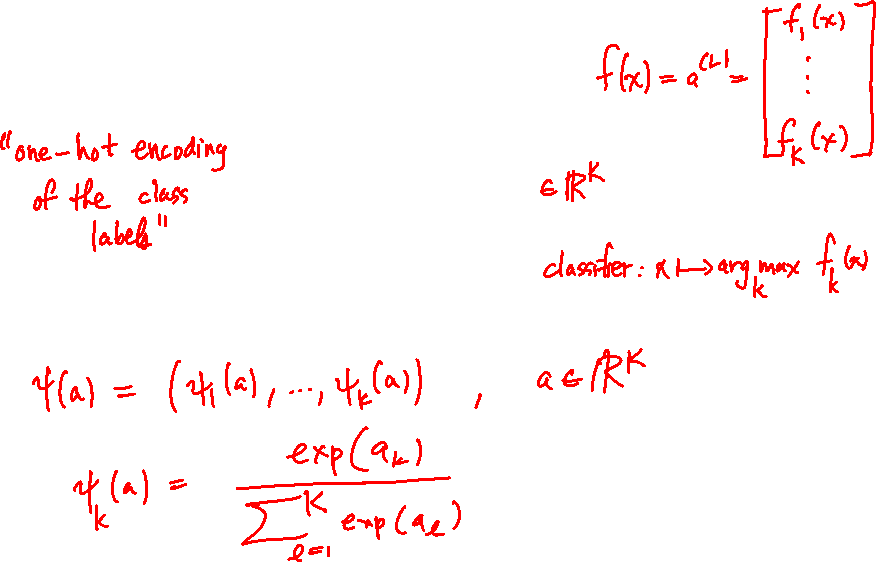 f(x) = a^{(L)} = [ f_1(x) ⋮ f_K(x) ]
"one-hot encoding
of the class
labels"
∈ ℝ^K
classifier: x ↦ arg max_k f_k(x)
ψ(a) = (ψ_1(a), ..., ψ_K(a)) , a ∈ ℝ^K
ψ_k(a) = exp(a_k) / ∑_{ℓ=1}^K exp(a_ℓ)